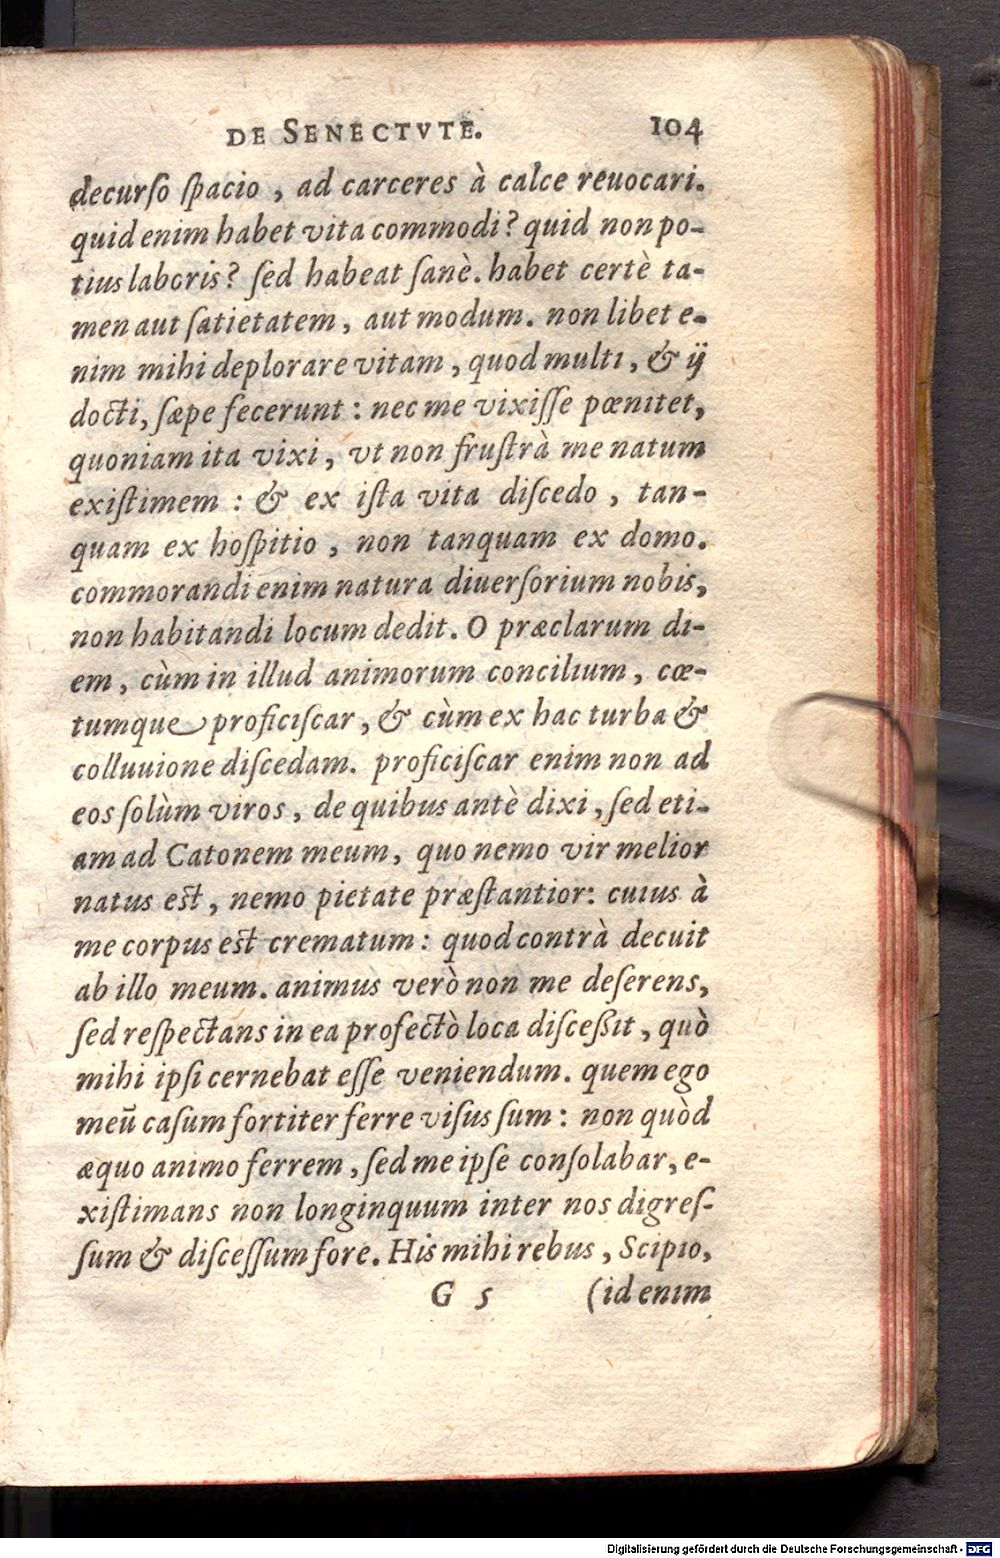 DE SENECTVTE. 104
decurſo ſpacio, ad carceres à calce reuocari.
quid enim habet vita commodi? quid non po-
tius laboris? ſed habeat ſanè. habet certè ta-
men aut ſatietatem, aut modum. non libet e-
nim mihi deplorare vitam, quod multi, & ij
docti, ſæpe fecerunt: nec me vixiſſe pœnitet,
quoniam ita vixi, vt non fruſtrà me natum
exiſtimem: & ex iſta vita diſcedo, tan-
quam ex hoſpitio, non tanquam ex domo.
commorandi enim natura diuerſorium nobis,
non habitandi locum dedit. O præclarum di-
em, cùm in illud animorum concilium, cœ-
tumque proficiſcar, & cùm ex hac turba &
colluuione diſcedam. proficiſcar enim non ad
eos ſolùm viros, de quibus antè dixi, ſed eti-
am ad Catonem meum, quo nemo vir melior
natus est, nemo pietate præſtantior: cuius à
me corpus est crematum: quod contrà decuit
ab illo meum. animus verò non me deſerens,
ſed reſpectans in ea profectò loca diſceßit, quò
mihi ipſi cernebat eſſe veniendum. quem ego
meū caſum fortiter ferre viſus ſum: non quòd
æquo animo ferrem, ſed me ipſe conſolabar, e-
xiſtimans non longinquum inter nos digreſ-
ſum & diſceſſum fore. His mihi rebus, Scipio,
G 5 (id enim
Digitalisierung gefördert durch die Deutsche Forschungsgemeinschaft - DFG